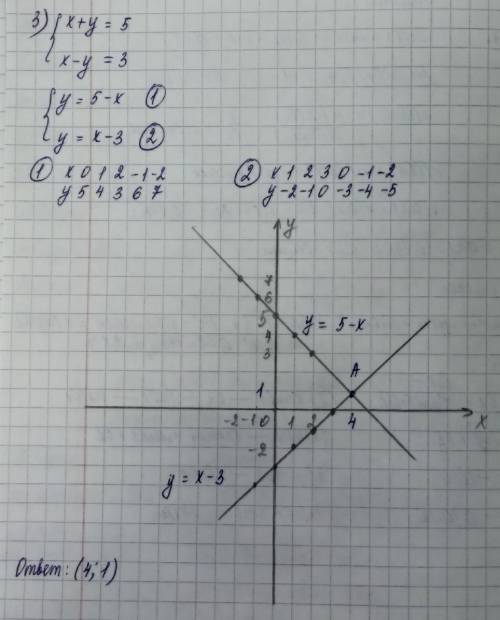 3) { x+y = 5
x-y = 3
{ y = 5-x ①
y = x-3 ②
① x 0 1 2 -1 -2
y 5 4 3 6 7
② x 1 2 3 0 -1 -2
y -2 -1 0 -3 -4 -5
y
7
6
5
4
3
y = 5-x
A
1
-2 -1 0 1 2 4 x
-2
y = x-3
Ответ: (4; 1)